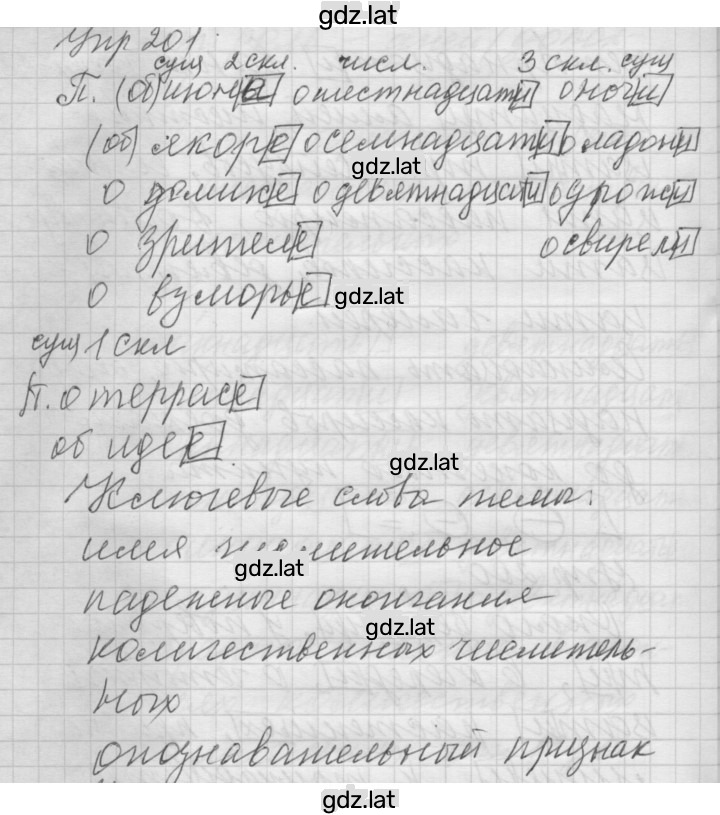 gdz.lat
Упр 201.
сущ 2 скл. числ. 3 скл. сущ
П. (об) июне о шестнадцати о ночи
(об) якоре о семнадцати о ладони
gdz.lat
о домике о девятнадцати о дрожи
о зрителе о свирели
о взморье gdz.lat
сущ 1 скл
П. о террасе
об идее
gdz.lat
Ключевые слова темы:
имя числительное
gdz.lat
падежные окончания
gdz.lat
количественных числитель-
ных
опознавательный признак
gdz.lat